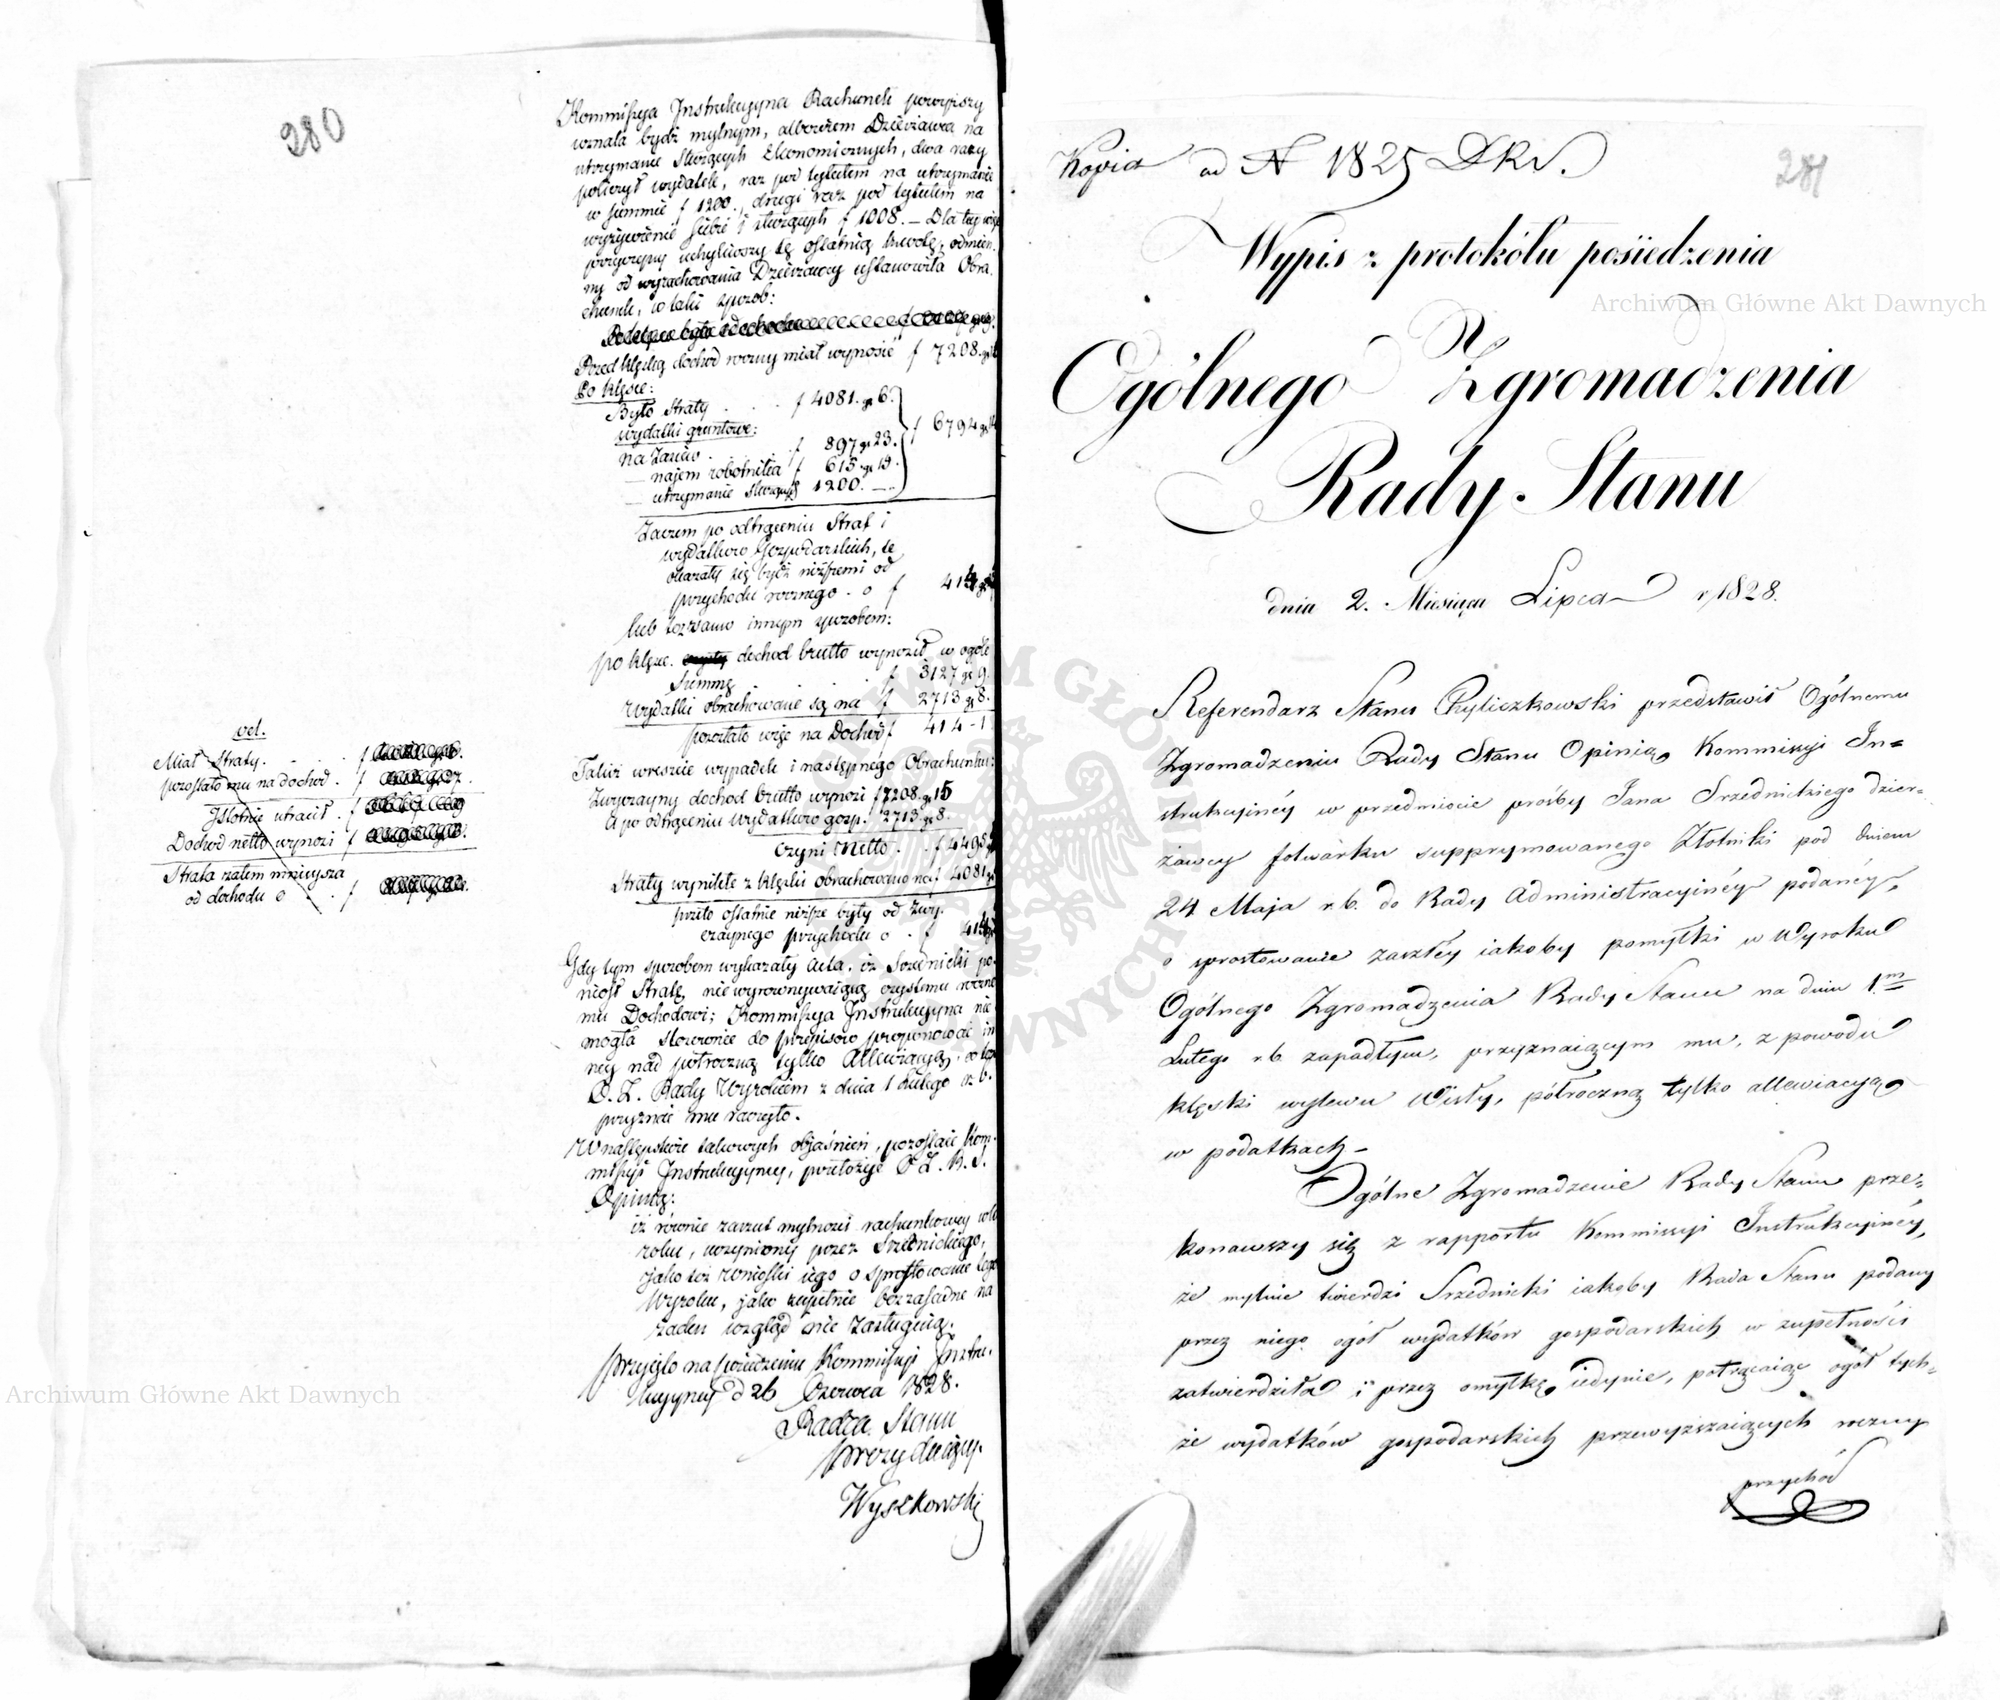 280
Kommissya Instrukcyyna Rachunek powyższy
uznała bydź mylnym, albowiem Dzierżawca na
utrzymanie służących Ekonomicznych, dwa razy
położył wydatek, raz pod tytułem na utrzymanie
w summie f 1200., drugi raz pod tytułem na
wyżywienie siebie i służących f 1008. — Dla tey więc
przyczyny uchyliwszy tę ostatnią kwotę, odmien
ny od wyrachowania Dzierżawcy ustanowiła Obra
chunek, w taki sposób:
Przed klęską dochód roczny miał wynosić f 7208. gr
Po klęsce:
Było Straty . . . f 4081. gr 6.
wydatki gruntowe: f 6794 gr 14
na zasiew . . . f 897 gr 23.
— najem robotnika f 615 gr 15.
— utrzymanie służących 1200. —.
Zaczem po odtrąceniu Strat i
wydatków Gospodarskich, te
okazały się bydź niższemi od
przychodu rocznego . o f 414 gr
lub tożsamo innym sposobem:
po klęsce. dochód brutto wynosił w ogóle
Summę . . . f 3127 gr 9.
Wydatki obrachowane są na f 2713 gr 8.
pozostało więc na Dochód f 414 - 1
Takiż wreszcie wypadek i z następnego Obrachunku:
Zwyczayny dochód brutto wynosi f 7208. gr 15
A po odtrąceniu wydatków gosp. 2713. gr 8.
czyni Netto . . f 4495
Straty wynikłe z klęski obrachowano na f 4081 gr
przeto ostatnie niższe były od zwy
czaynego przychodu o . f 414
Gdy tym sposobem wykazały Akta, iż Srzednicki po
niosł Stratę, nie wyrównywaiącą czystemu roczne
mu Dochodowi; Kommissya Instrukcyyna nie
mogła stosownie do przepisów proponować in
ney nad półroczną tylko Allewiacyą,
O. Z. Rady Wyrokiem z dnia 1 Lutego r. b.
przyznać mu raczyło.
W następstwie takowych objaśnień, pozostaie Kom
missyi Instrukcyyney, przełożyć O Z. R. S.
Opinią:
iż równie zarzut mylności rachunkowey w
roku, uczyniony przez Srzednickiego,
jako też Wnioski iego o sprostowanie tego
Wyroku, jako zupełnie bezzasadne na
żaden wzgląd nie zasługuią.
Przyięto na posiedzeniu Kommissyi Instru
kcyyney d 26 Czerwca 1828.
Radca Stanu
Prezyduiący.
Wyszkowski
vel.
Miał Straty . . . f
pozostało mu na dochód . f
Istotnie utracił . f
Dochód netto wynosi f
Strata zatem mnieysza
od dochodu o . . f
Kopia ad N 1825 DKv.
281
Wypis z protokółu posiedzenia
Ogólnego Zgromadzenia
Rady Stanu
dnia 2. Miesiąca Lipca r. 1828.
Referendarz Stanu Chyliczkowski przedstawił Ogólnemu
Zgromadzeniu Rady Stanu Opinią Kommissyi In=
strukcyinéy w przedmiocie prośby Jana Srzednickiego dzier=
żawcy folwarku supprymowanego Złotniki pod dniem
24 Maja r. b. do Rady Administracyinéy podanéy,
o sprostowanie zaszłéy iakoby pomyłki w Wyroku
Ogólnego Zgromadzenia Rady Stanu na dniu 1m
Lutego r. b. zapadłym, przyznaiącym mu, z powodu
klęski wylewu Wisły, półroczną tylko allewiacyą
w podatkach —
Ogólne Zgromadzenie Rady Stanu prze=
konawszy się z rapportu Kommissyi Instrukcyinéy,
że mylnie twierdzi Srzednicki iakoby Rada Stanu podany
przez niego ogół wydatków gospodarskich w zupełności
zatwierdziła i przez omyłkę iedynie, potrącaiąc ogół tych=
że wydatków gospodarskich przewyższaiących roczny
przychód
Archiwum Główne Akt Dawnych
Archiwum Główne Akt Dawnych
ARCHIWUM GŁÓWNE AKT DAWNYCH